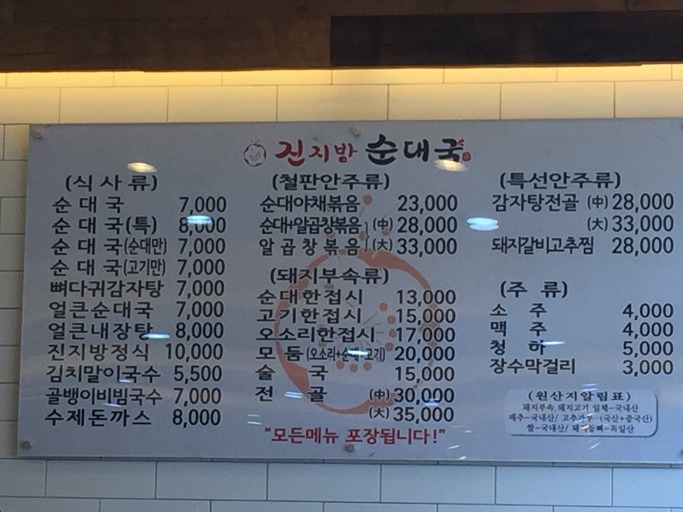 진지방 순대국
(식사류)
순대국 7,000
순대국(특) 8,000
순대국(순대만) 7,000
순대국(고기만) 7,000
뼈다귀감자탕 7,000
얼큰순대국 7,000
얼큰내장탕 8,000
진지방정식 10,000
김치말이국수 5,500
골뱅이비빔국수 7,000
수제돈까스 8,000
(철판안주류)
순대야채볶음 23,000
순대+알곱창볶음 (中) 28,000
알곱창볶음 (大) 33,000
(돼지부속류)
순대한접시 13,000
고기한접시 15,000
오소리한접시 17,000
모둠(오소리+순대+고기) 20,000
술국 15,000
전골 (中) 30,000
(大) 35,000
(특선안주류)
감자탕전골 (中) 28,000
(大) 33,000
돼지갈비고추찜 28,000
(주류)
소주 4,000
맥주 4,000
청하 5,000
장수막걸리 3,000
(원산지알림표)
돼지부속, 돼지고기 일체-국내산
배추-국내산/ 고추가루-(국산+중국산)
쌀-국내산/ 돼지등뼈-독일산
"모든메뉴 포장됩니다!"